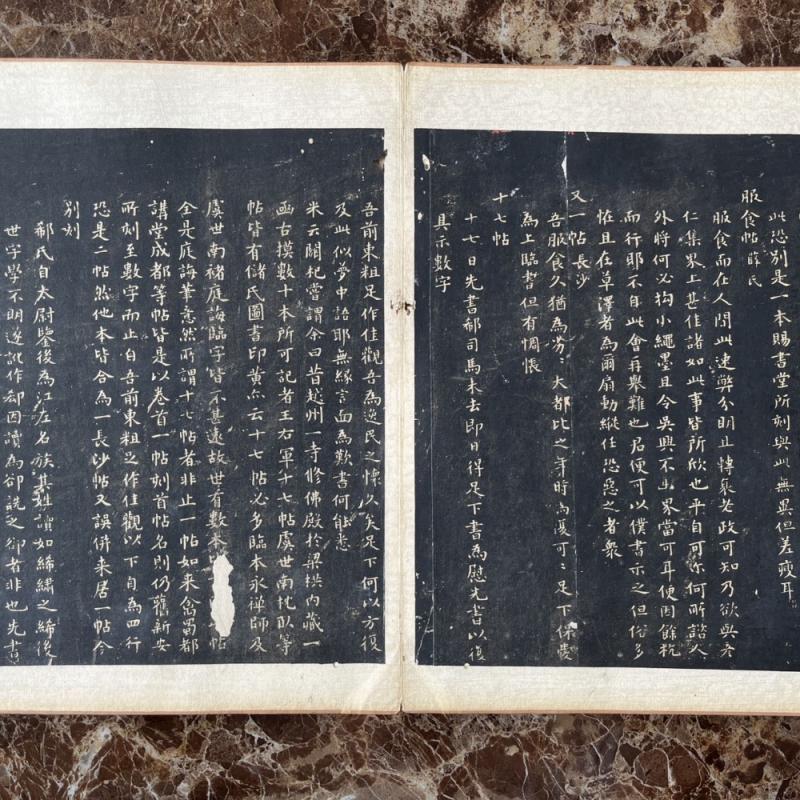 此恐別是一本賜書堂所刻與此無異但差瘦耳
服食帖
服食而在人間此速弊分明且轉衰老政可知乃欲與彥
仁集界上甚佳諸如此事皆所欣也平自可尔何所諮人
外將何必拘小繩墨且令吳興不出界當可耳便因餘杭
而行耶不自此會再舉難也君便可以僕書示之但俗多
恠且在草澤者為爾扇動縱任恐惡之者衆
又一帖長沙
吾服食久猶為劣〻大都比之年時為復可〻足下保愛
為上臨書但有惆悵
十七帖
十七日先書郗司馬未去即日得足下書為慰先書以復
具示數字
吾前東粗足作佳觀吾為逸民之懷久矣足下何以方復
及此似夢中語耶無緣言面為歎書何能悉
米云關杞嘗謂余曰昔越州一寺修佛殿於梁栱內藏一
函古摸數十本所可記者王右軍十七帖虞世南枕臥等
帖皆有儲氏圖書印黃云十七帖必多臨本永禪師及
虞世南褚庭誨臨字皆不甚遠故世有數本 帖
全是庭誨筆意然所謂十七帖者非止一帖如来禽蜀都
講堂成都等帖皆是以卷首一帖刻首帖名則仍舊新安
所刻至數字而止自吾前東粗足作佳觀以下自為四行
恐是二帖然他本皆合為一長沙帖又誤併来居一帖今
別刻
郗氏自太尉鑒後為江左名族其姓讀如絺繡之絺後
世字學不明遂訛作卻因讀為卻詵之卻者非也先書